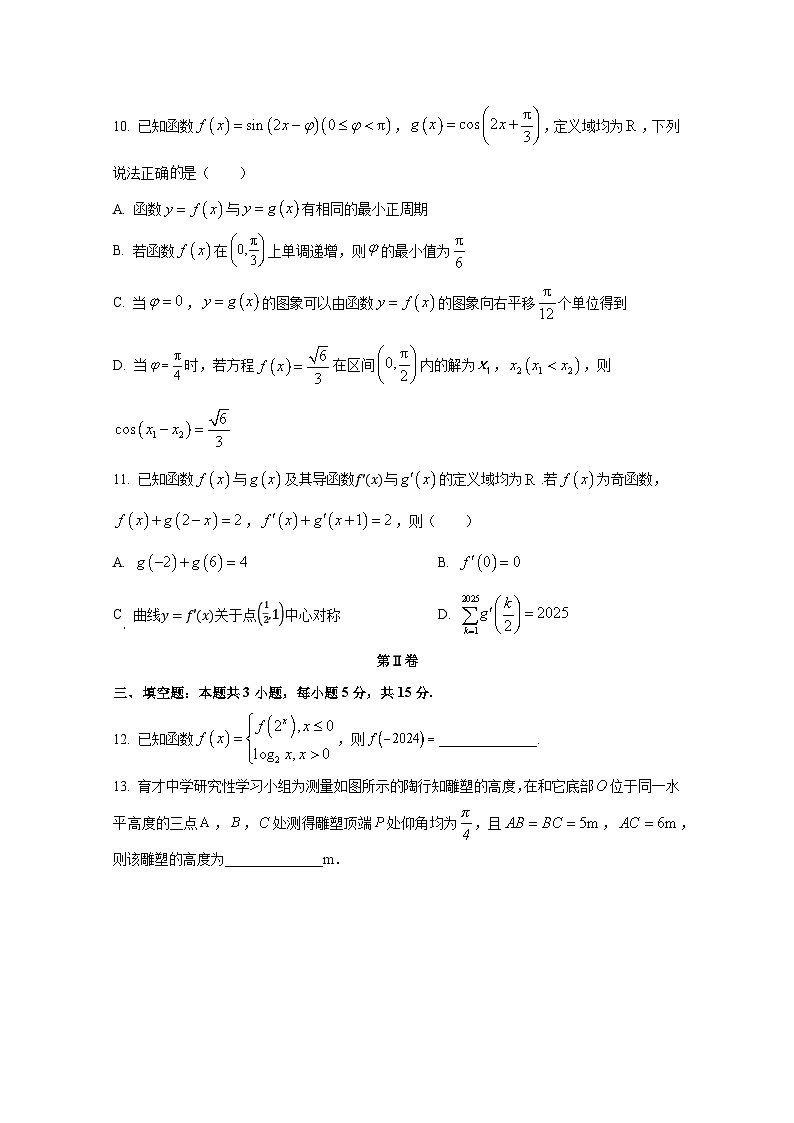 10. 已知函数 f(x)=sin(2x−φ)(0≤φ<π)，g(x)=cos(2x+π/3)，定义域均为 R，下列
说法正确的是（　　）
A. 函数 y=f(x) 与 y=g(x) 有相同的最小正周期
B. 若函数 f(x) 在 (0,π/3) 上单调递增，则 φ 的最小值为 π/6
C. 当 φ=0，y=g(x) 的图象可以由函数 y=f(x) 的图象向右平移 π/12 个单位得到
D. 当 φ=π/4 时，若方程 f(x)=√6/3 在区间 (0,π/2) 内的解为 x₁，x₂(x₁<x₂)，则
cos(x₁−x₂)=√6/3
11. 已知函数 f(x) 与 g(x) 及其导函数 f′(x) 与 g′(x) 的定义域均为 R .若 f(x) 为奇函数，
f(x)+g(2−x)=2，f′(x)+g′(x+1)=2，则（　　）
A. g(−2)+g(6)=4 B. f′(0)=0
C. 曲线 y=f′(x) 关于点 (1/2,1) 中心对称 D. ∑_{k=1}^{2025} g′(k/2)=2025
第Ⅱ卷
三、填空题：本题共 3 小题，每小题 5 分，共 15 分.
12. 已知函数 f(x)={f(2ˣ), x≤0; log₂ x, x>0，则 f(−2024)= ______________.
13. 育才中学研究性学习小组为测量如图所示的陶行知雕塑的高度，在和它底部 O 位于同一水
平高度的三点 A，B，C 处测得雕塑顶端 P 处仰角均为 π/4，且 AB=BC=5m，AC=6m，
则该雕塑的高度为______________m．